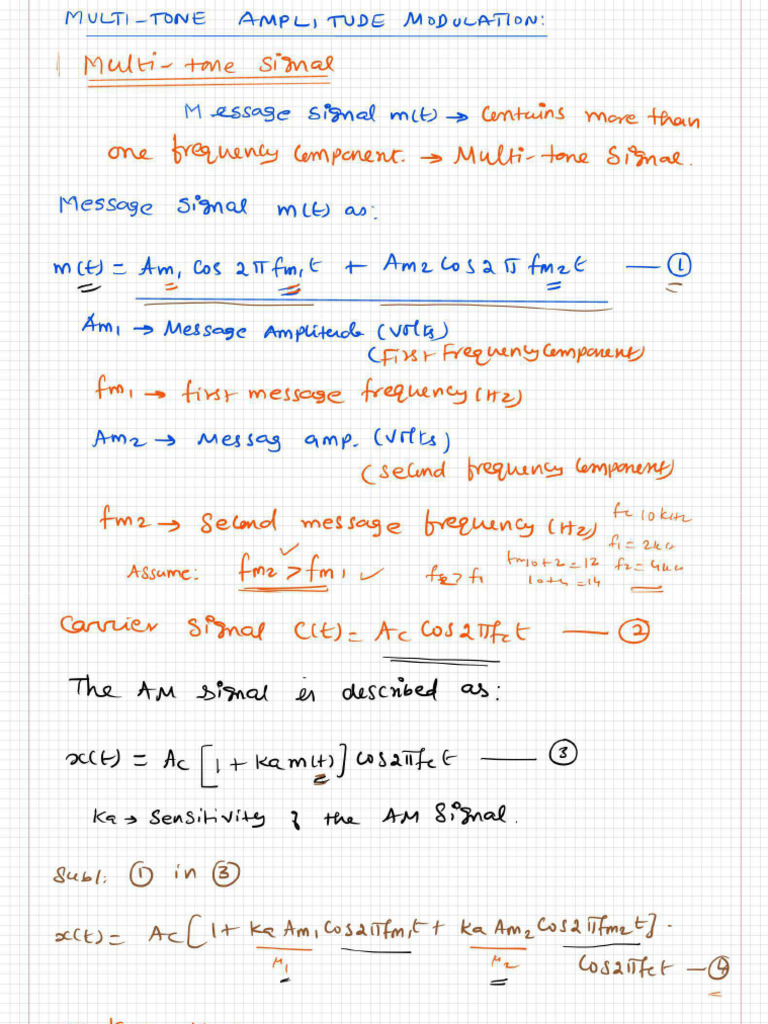 MULTI-TONE AMPLITUDE MODULATION:
Multi-tone signal
Message signal m(t) → contains more than
one frequency component. → Multi-tone signal.
Message signal m(t) as:
m(t) = Am₁ cos 2πfm₁t + Am2 cos 2πfm2t — ①
Am₁ → Message Amplitude (volts)
(First Frequency Component)
fm₁ → first message frequency (Hz)
Am2 → Messag amp. (volts)
(second frequency component)
fm2 → second message frequency (Hz)
fc 10 kHz
f₁ = 2k
Assume: fm2 > fm₁ ✓ f2 > f₁ 10+2 = 12 f2 = 4k
10+4 = 14
Carrier signal c(t) = Ac cos2πfct — ②
The AM signal is described as:
x(t) = Ac [1 + ka m(t)] cos2πfct — ③
ka → sensitivity of the AM signal.
① in ③
x(t) = Ac [1 + ka Am₁ cos2πfm₁t + ka Am₂ cos2πfm2t] .
μ₁ μ₂ cos2πfct — ④